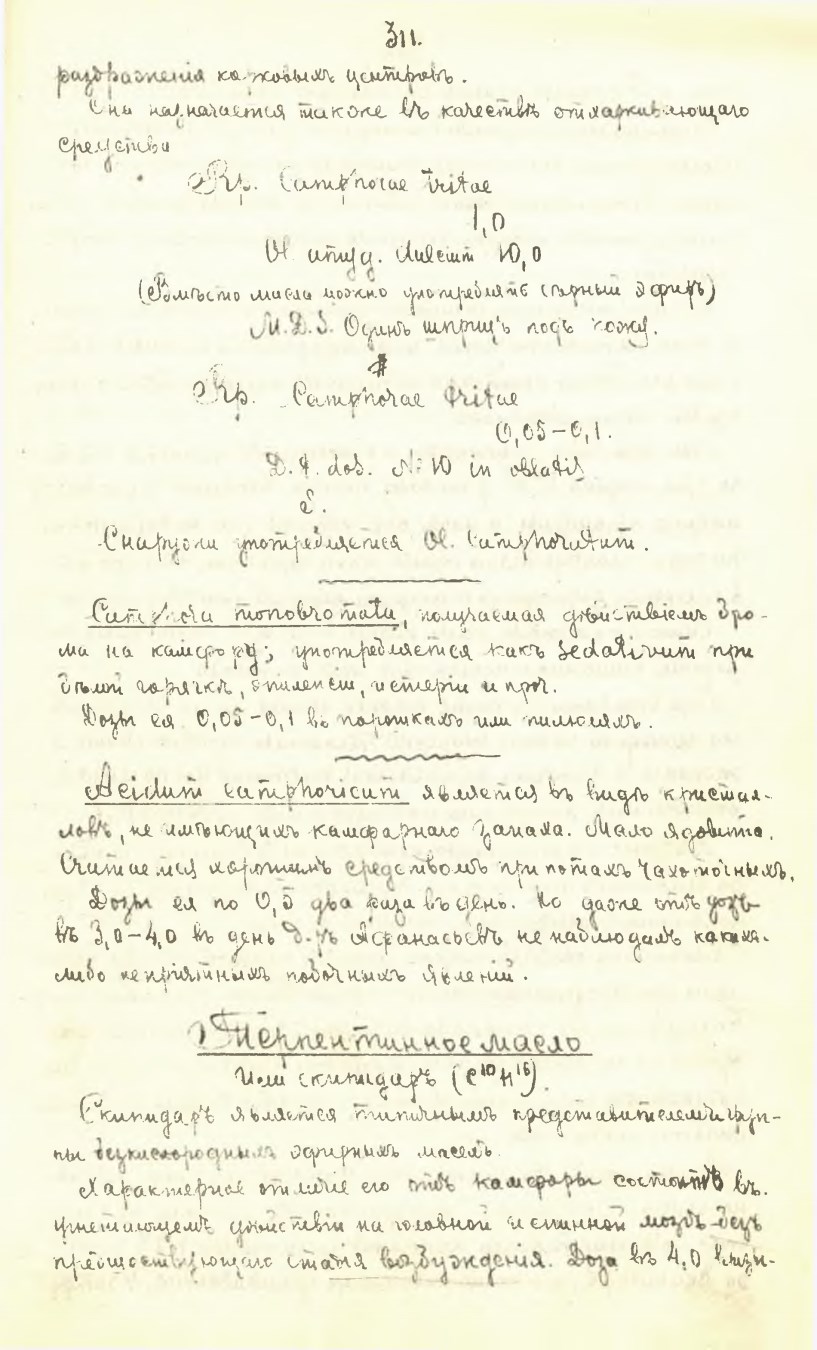 311.
раздраженія корковыхъ центровъ.
Она назначается также въ качествѣ отхаркивающаго
средства
Rp. Camphorae tritae
1,0
Ol. amygd. dulcium 10,0
(Вмѣсто масла можно употреблять сѣрный эфиръ)
M.D.S. Одинъ шприцъ подъ кожу.
#
Rp. Camphorae tritae
0,05-0,1.
D.t. dos. №10 in oblatis
S.
Снаружи употребляется Ol. Camphoratum.
Camphora monobromata, получаемая дѣйствіемъ бро-
ма на камфору; употребляется какъ sedativum при
бѣлой горячкѣ, эпилепсіи, истеріи и проч.
Дозы ея 0,05-0,1 въ порошкахъ или пилюляхъ.
Acidum camphoricum является въ видѣ кристал-
ловъ, не имѣющихъ камфарнаго запаха. Мало ядовита.
Считается хорошимъ средствомъ при потахъ чахоточныхъ.
Дозы ея по 0,5 два раза въ день. Но даже отъ дозъ
въ 3,0-4,0 въ день д-ръ Афанасьевъ не наблюдалъ какихъ-
либо непріятныхъ побочныхъ явленій.
Терпентинное масло
Или скипидаръ (C10H16).
Скипидаръ является типичнымъ представителемъ груп-
пы безкислородныхъ эфирныхъ маселъ.
Характерное отличіе его отъ камфоры состоитъ въ
угнетающемъ дѣйствіи на головной и спинной мозгъ безъ
предшествующаго стадія возбужденія. Доза въ 4,0